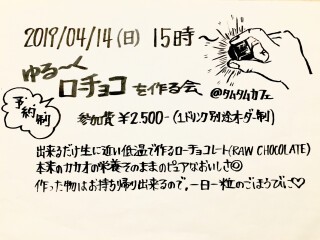 2019/04/14(日) 15時〜
ゆる〜く
ローチョコを作る会 @タムタムカフェ
予約制
参加費 ¥2,500-(1ドリンク別途オーダー制)
出来るだけ生に近い低温で作るローチョコレート(RAW CHOCOLATE)
本来のカカオの栄養そのままのピュアなおいしさ◎
作った物はお持ち帰り出来るので、一日一粒のごほうびに♡